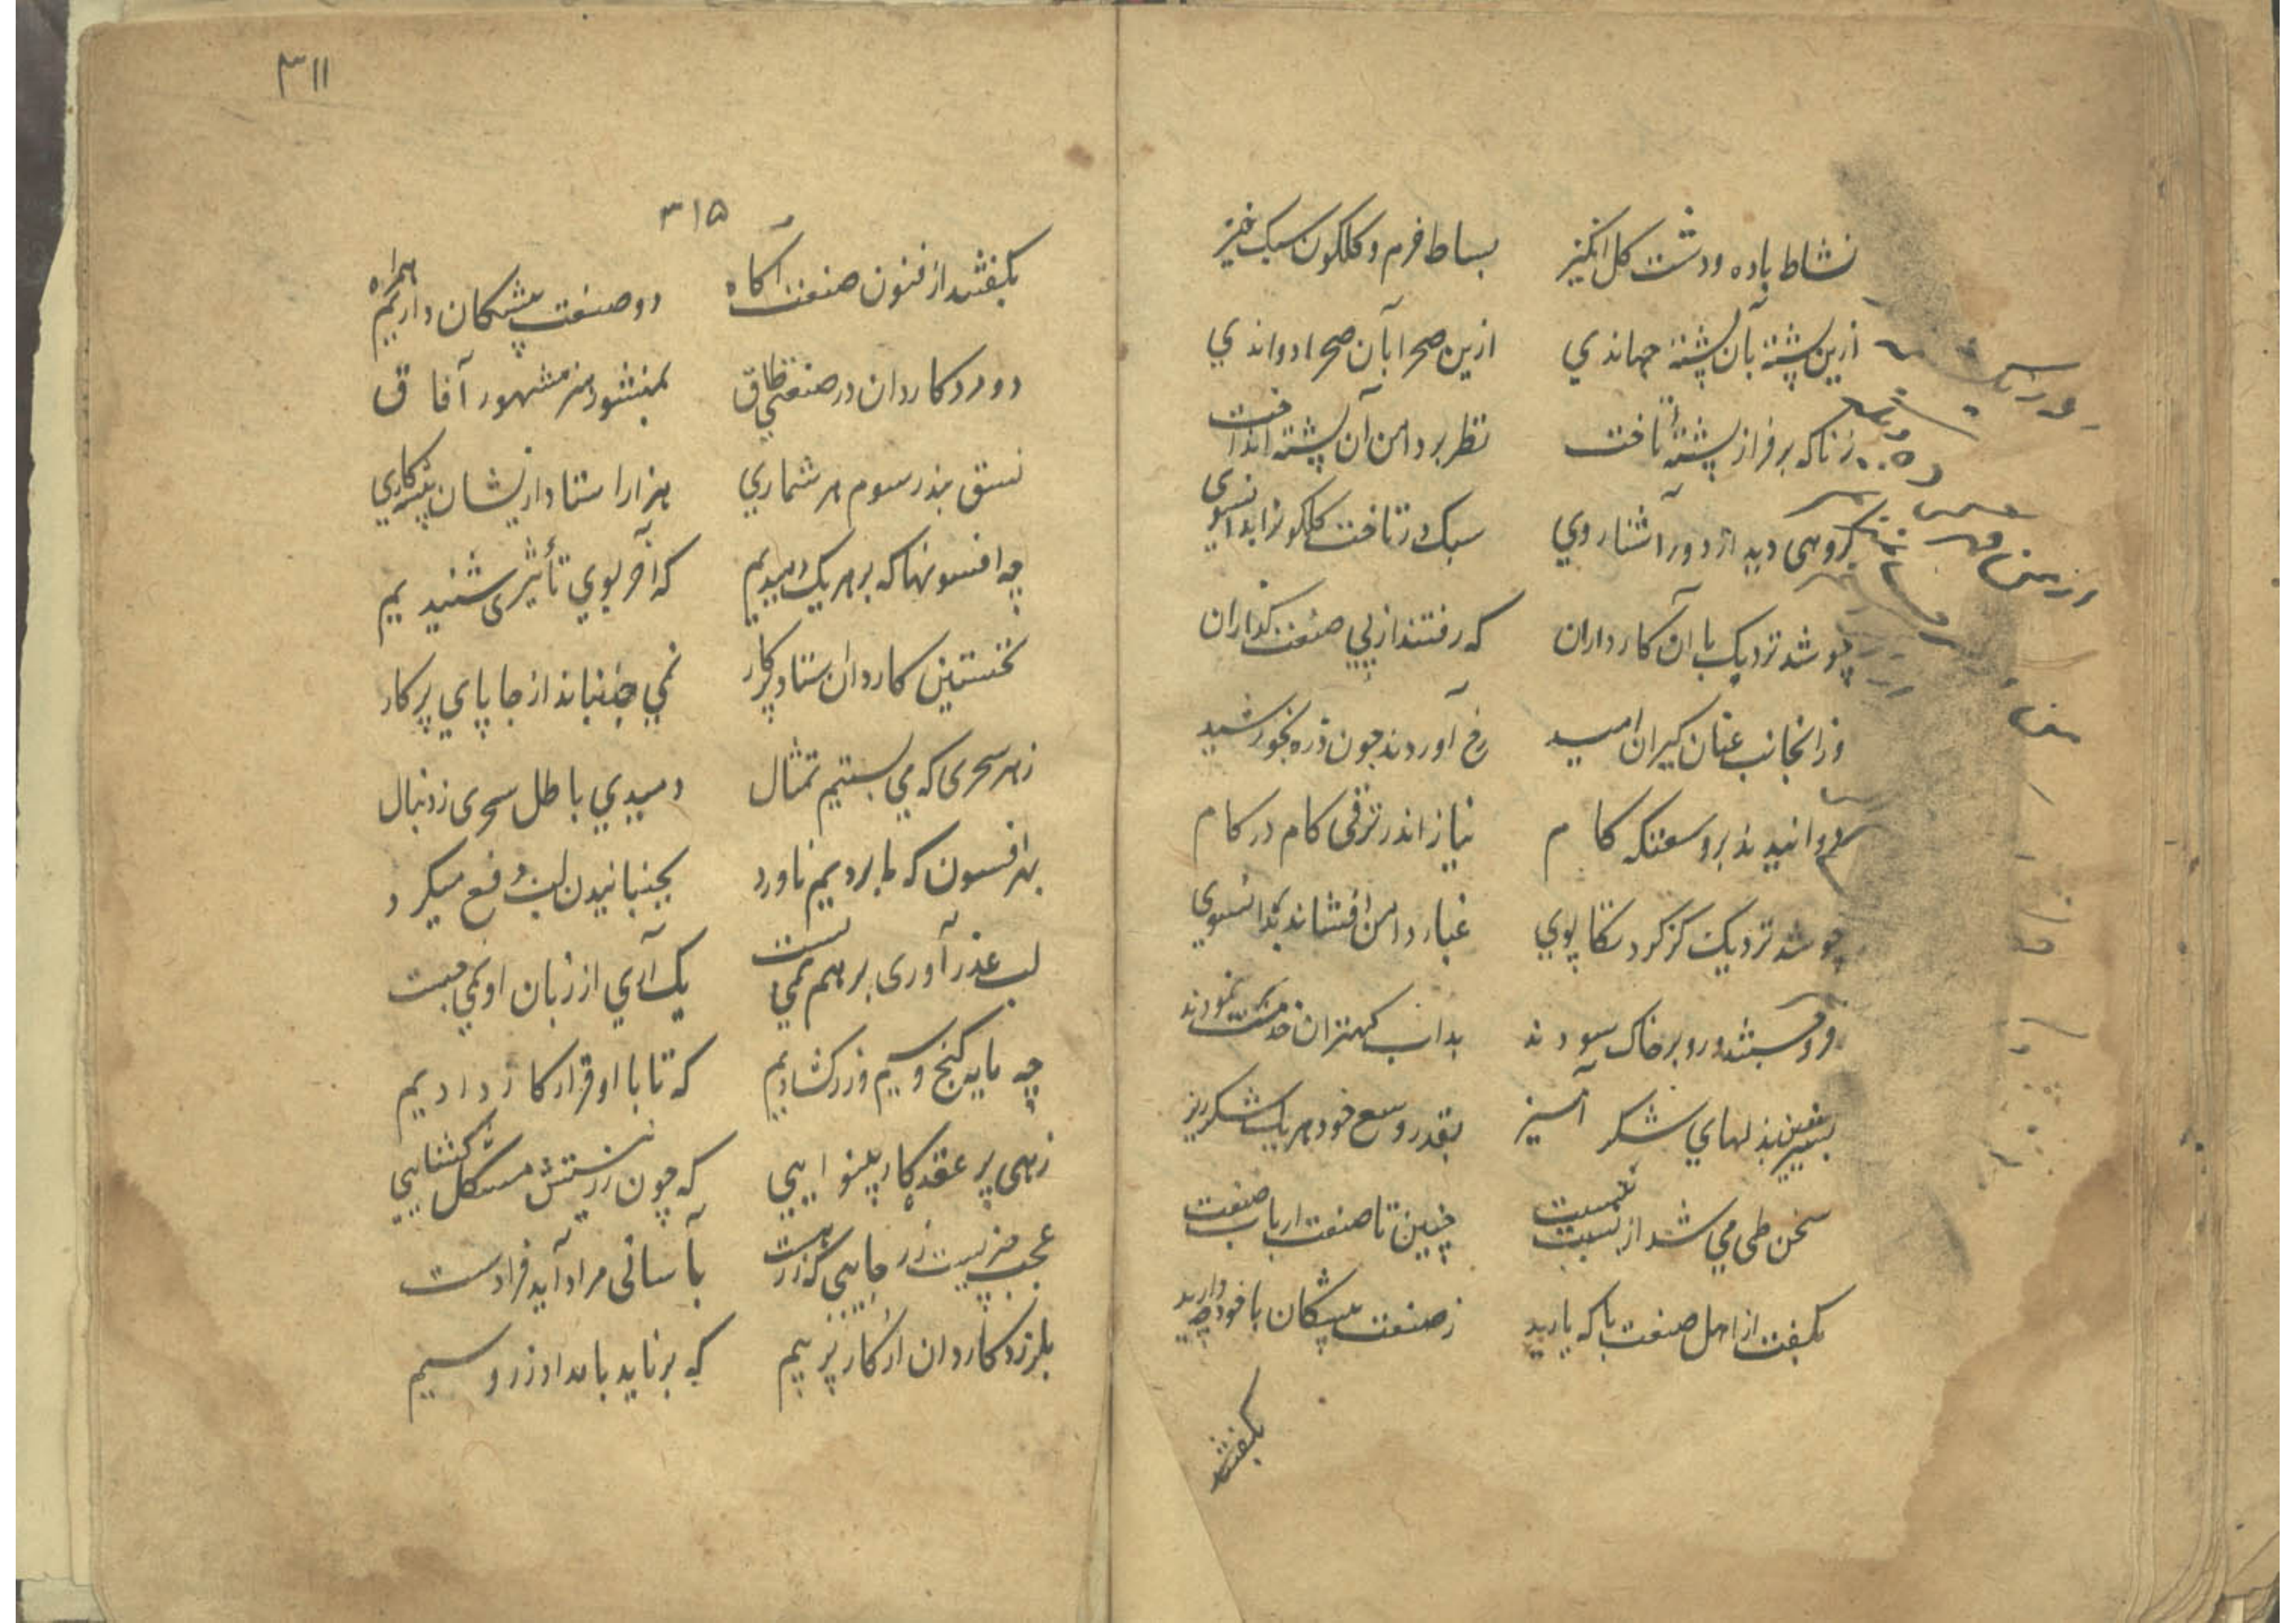 نشاط باده و دشت کل انکیز بساط خرم و کلکون سبک خیز
ازین پشته بآن پشته جهاندی ازین صحرا بآن صحرا دواندی
زناکه بر فراز پشته تاخت نظر بر دامن آن پشته انداخت
کروهی دید از دور آشنا روی سبک در تاخت کلکون را بدانسوی
چو شد نزدیک با آن کارداران که رفتند از پی صنعت کذاران
وز آنجانب عنان کیران امید رخ آوردند چون ذره بخورشید
دوانیدند بر وسعتکه کام نیاز اندر ترقی کام در کام
چو شد نزدیک کز کرد تکاپوی غبار دامن افشاند بدانسوی
فرو جستند و رو بر خاک سودند بداب کهتران خدمت نمودند
بشیرین بذلهای شکر آمیز بقدر وسع خود هر یک شکرریز
سخن طی می شد از نسبت بنسبت چنین تا صنعت ارباب صنعت
بکفت از اهل صنعت با که یارید ز صنعت پیشکان با خود چه دارید
بکفتند
۳۱۱
۳۱۵
بکفتند از فنون صنعت آکاه دو صنعت پیشکان داریم همراه
دو مرد کاردان در صنعتی طاق بمنشور هنر مشهور آفاق
نسق بند رسوم هر شماری هزار استاد ازیشان پیشکاری
چه افسونها که بر هر یک دمیدیم که آخر بوی تأثیری شنیدیم
نخستین کاردان استاد پرکار نمی جنباند از جا پای پرکار
ز هر سحری که می بستیم تمثال دمیدی باطل سحری ز دنبال
بهر افسون که ما بردیم ناورد بجنبانیدن لب دفع میکرد
لب عذر آوری بر هم نمی بست یک آری از زبان او نمی جست
چه مایه کنج و سیم و زر کشادیم که تا با او قرار کار دادیم
زهی پر عقده کار بینوایی که چون زر نیستش مشکل کشایی
عجب چیزیست زر جایی که زر هست بآسانی مراد آید فرا دست
بلرزد کاردان از کار پر بیم که بر ناید بامداد زر و سیم